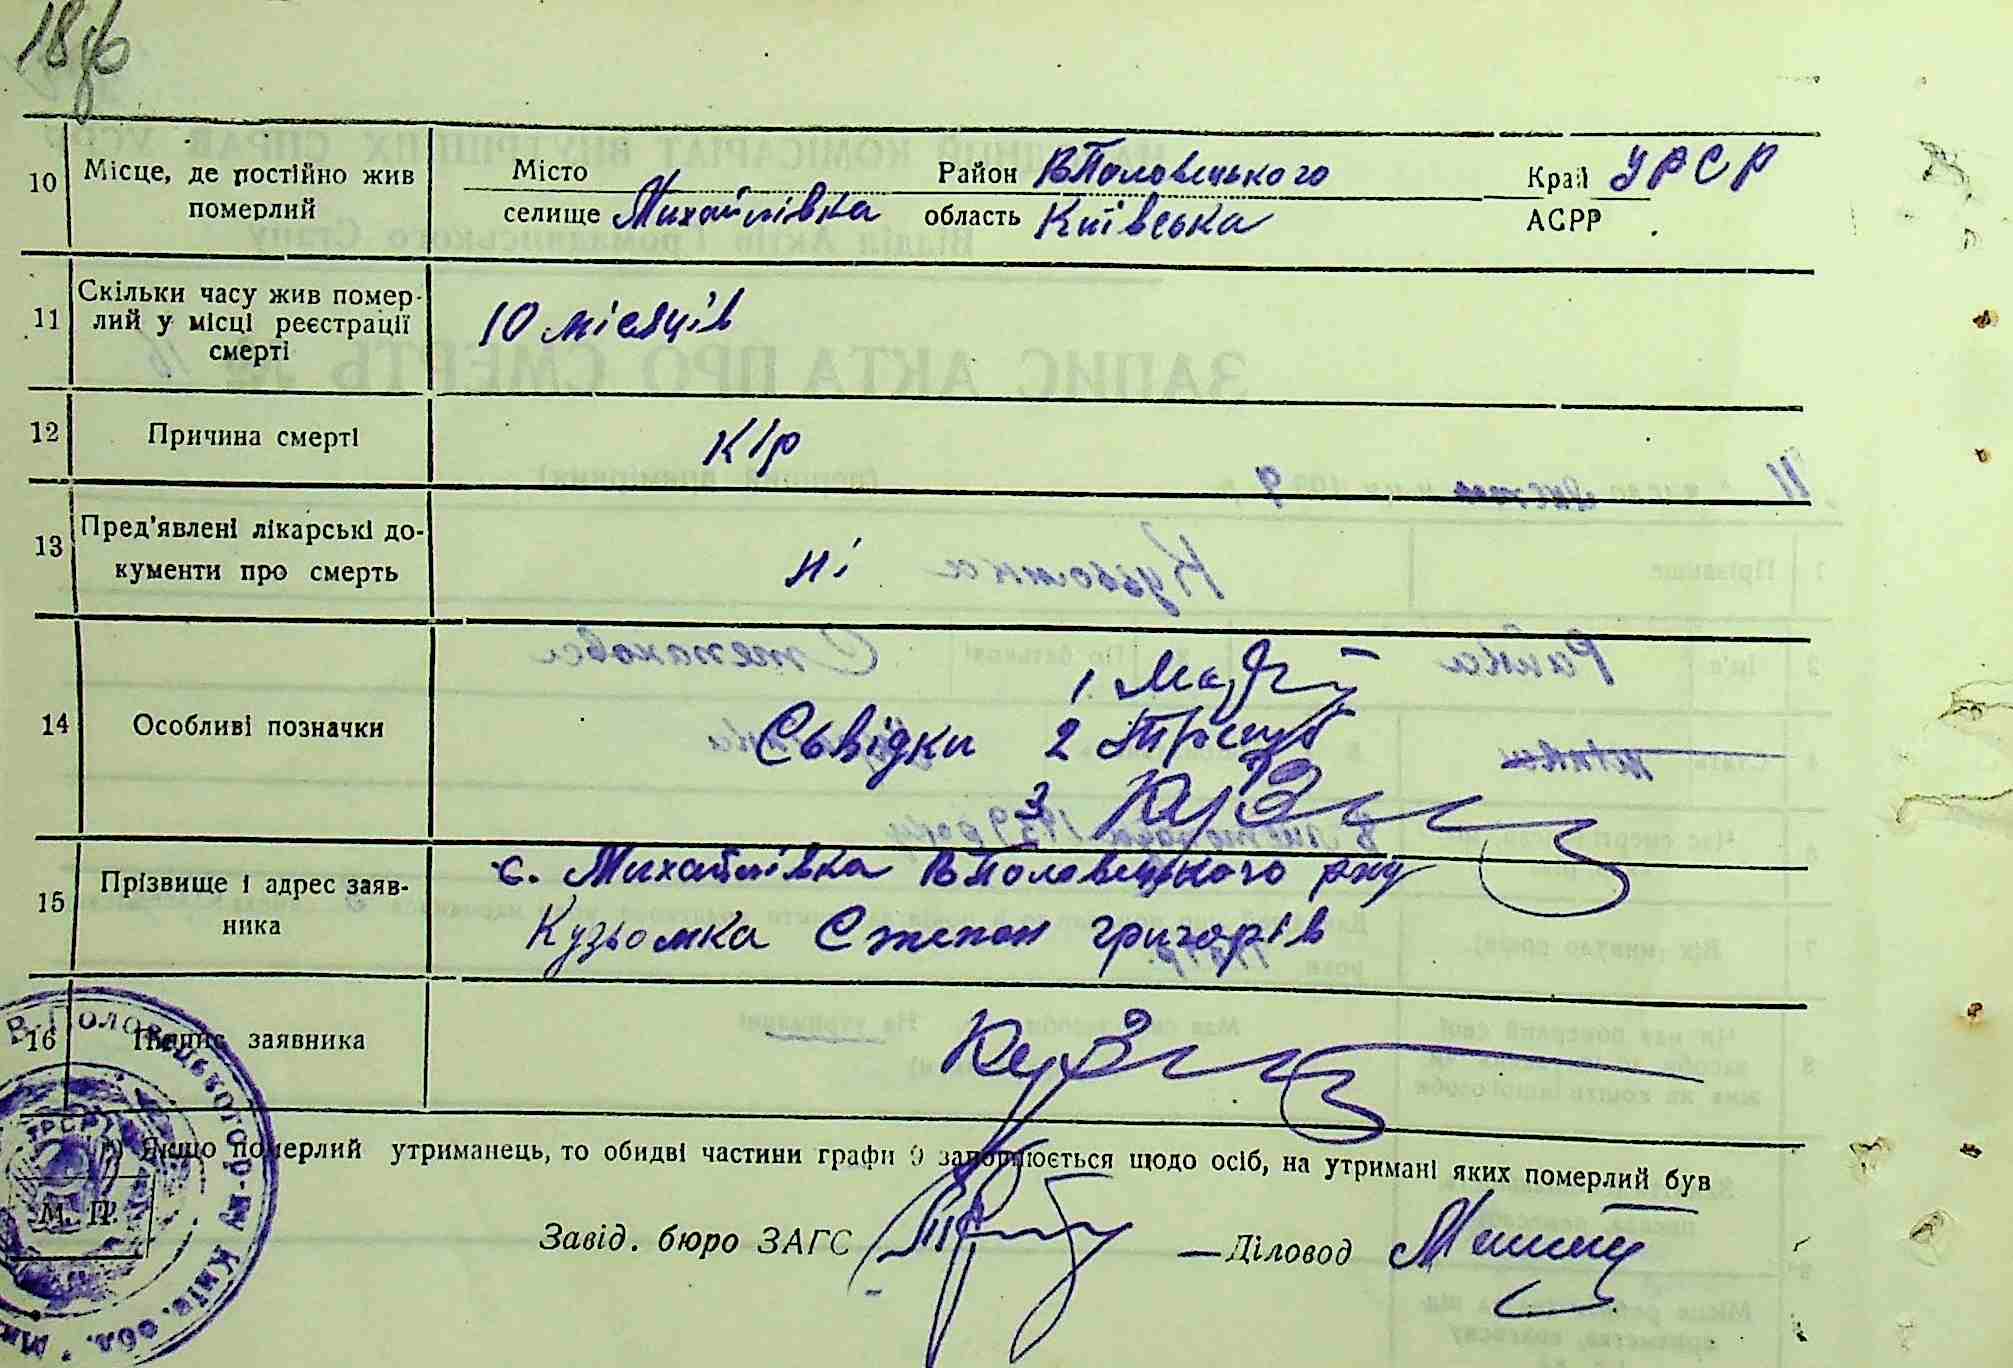 18зв
10 Місце, де постійно жив померлий
Місто Район В Половецького Край УРСР
селище Михайлівка область Київська АСРР
11 Скільки часу жив помер-
лий у місці реєстрації
смерті
10 місяців
12 Причина смерті кір
13 Пред'явлені лікарські до-
кументи про смерть
ні
14 Особливі позначки
Сьвідки 1
2
3
15 Прізвище і адрес заяв-
ника
с. Михайлівка В Половецького р-ну
Кузьомка Степан григорів
16 Підпис заявника
*) Якщо померлий утриманець, то обидві частини графи 9 заповнюється щодо осіб, на утримані яких померлий був
М. П.
Завід. бюро ЗАГС — Діловод
В. Половецького р-ну Київ. обл.
УРСР